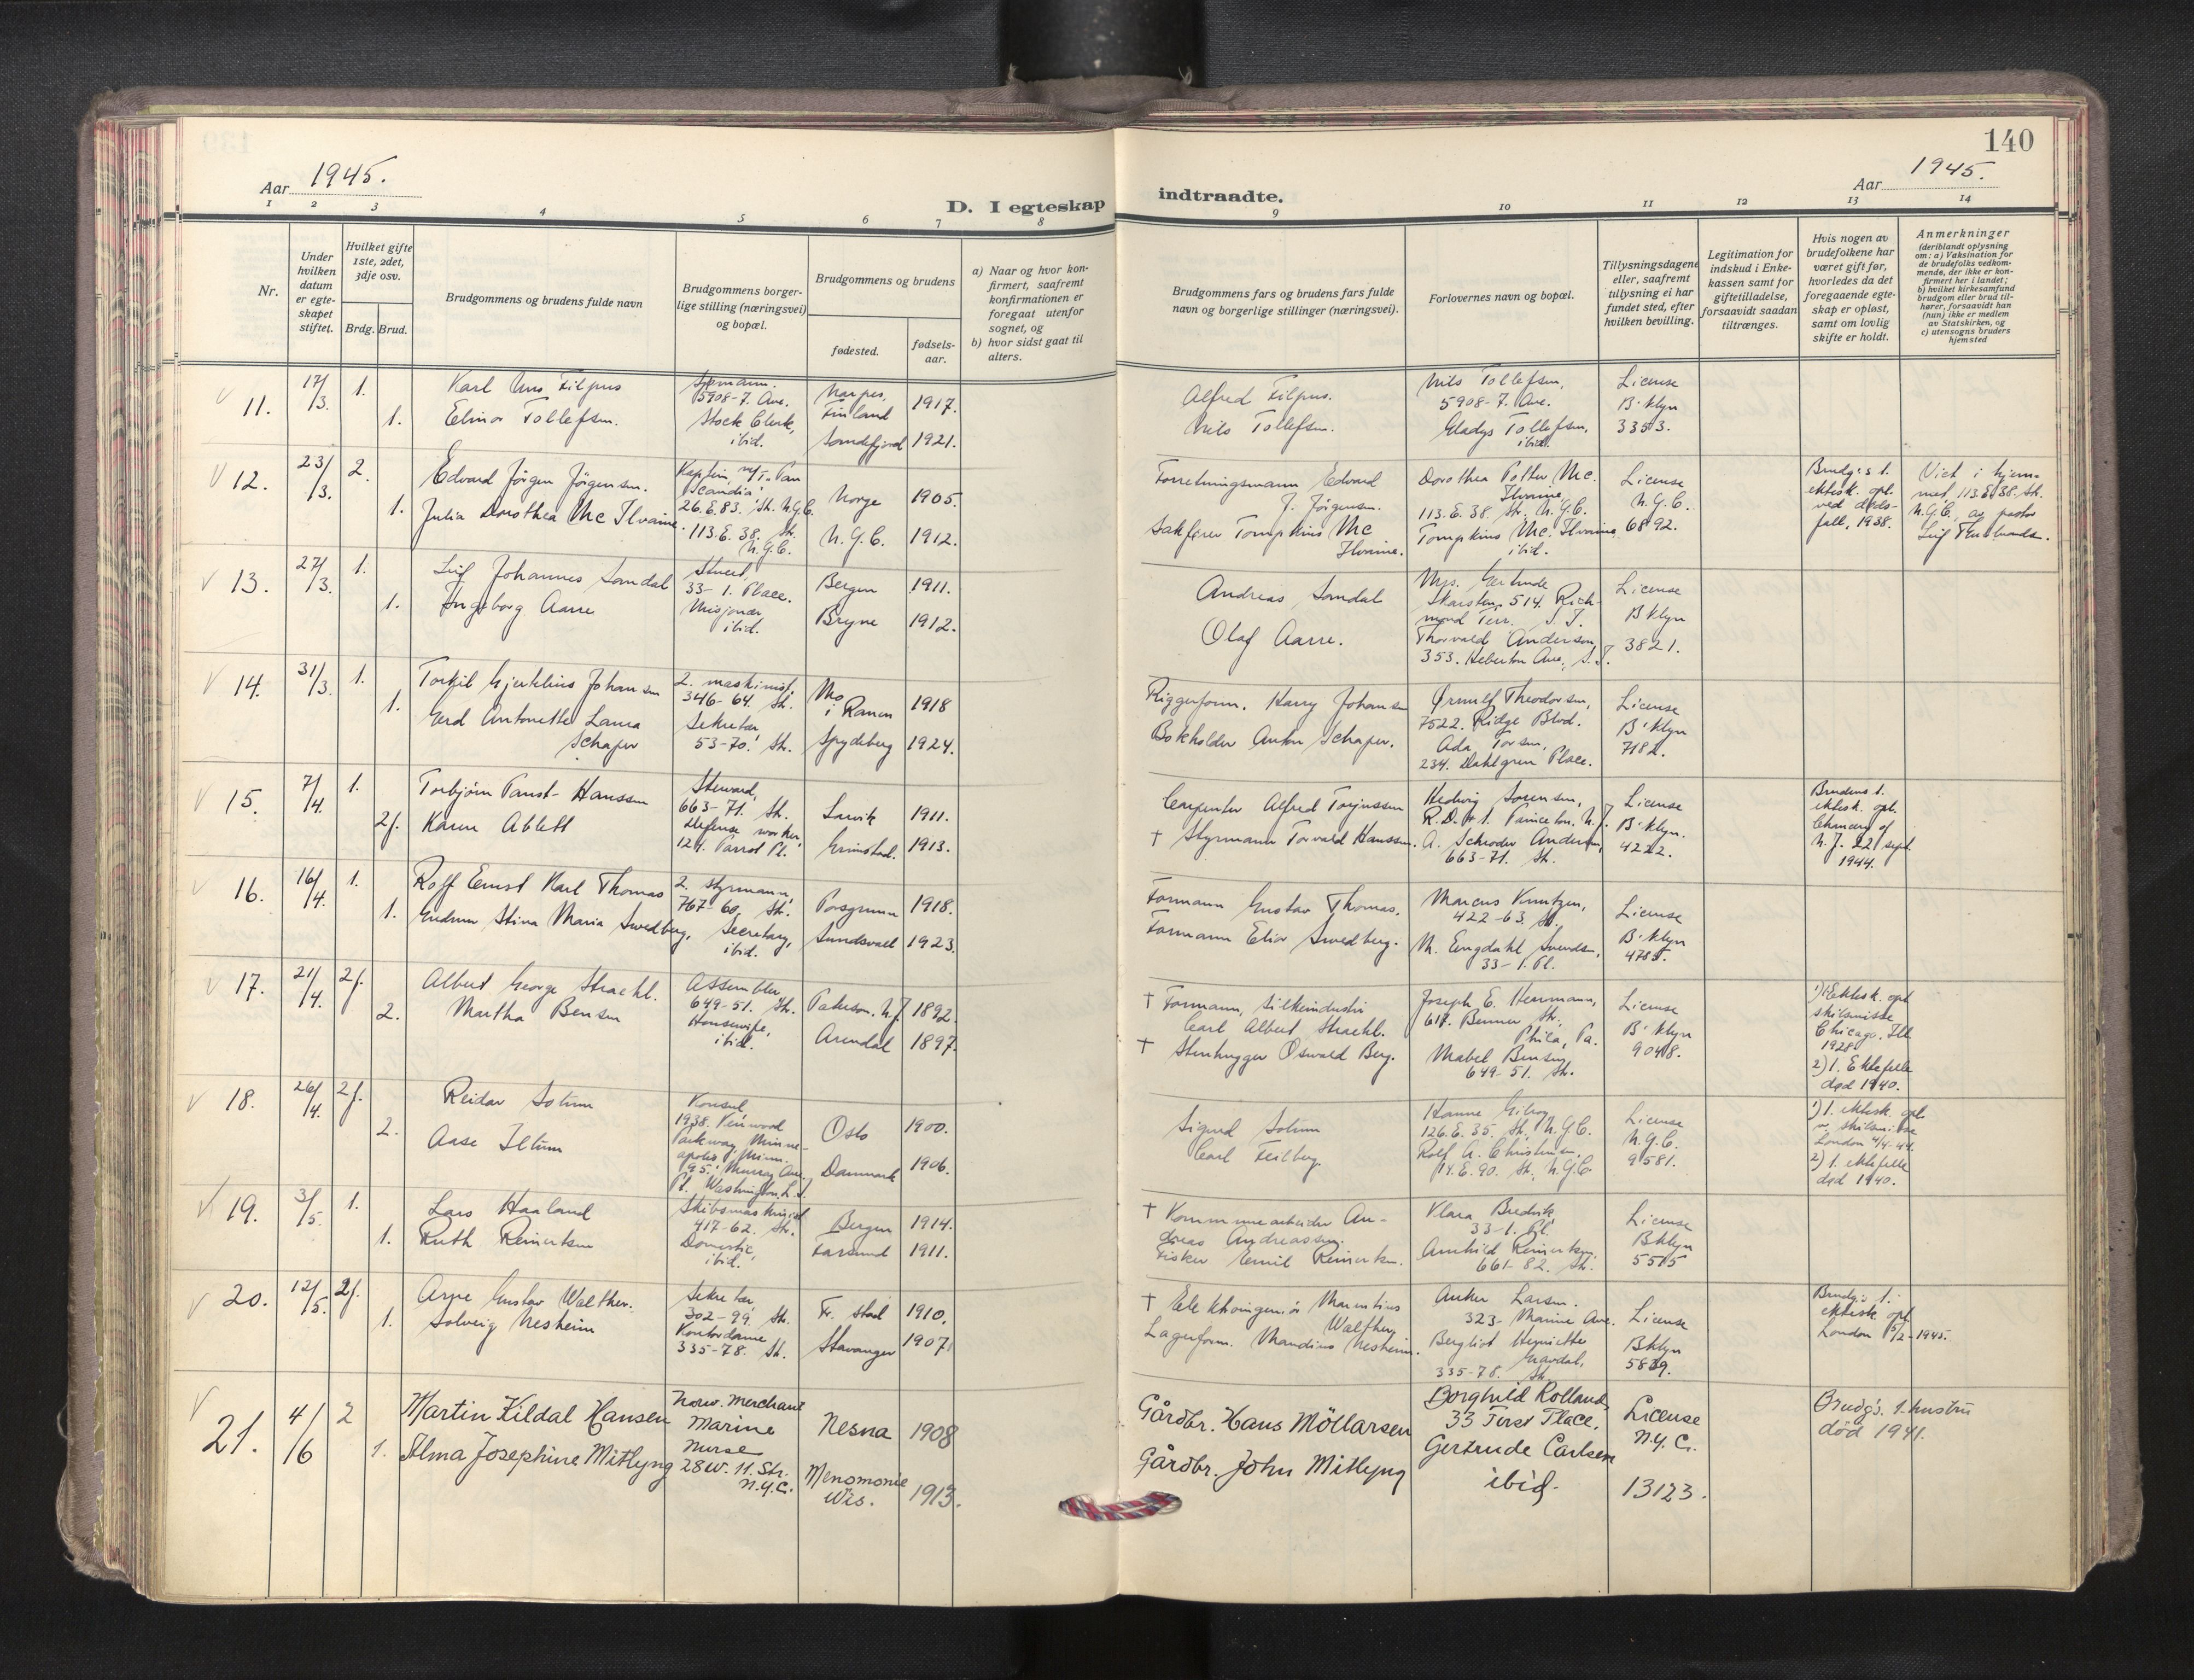 Aar 1945.
D. I egteskap
indtraadte.
140
Aar 1945.
1 2 3 4 5 6 7 8
9 10 11 12 13 14
Nr.
Under hvilken datum er egteskapet stiftet.
Hvilket gifte 1ste, 2det, 3dje osv.
Brdg. Brud.
Brudgommens og brudens fulde navn
Brudgommens borgerlige stilling (næringsvei) og bopæl.
Brudgommens og brudens
fødested.
fødselsaar.
a) Naar og hvor konfirmert, saafremt konfirmationen er foregaat utenfor sognet, og
b) hvor sidst gaat til alters.
Brudgommens fars og brudens fars fulde navn og borgerlige stillinger (næringsvei).
Forlovernes navn og bopæl.
Tillysningsdagene eller, saafremt tillysning ei har fundet sted, efter hvilken bevilling.
Legitimation for indskud i Enkekassen samt for giftetilladelse, forsaavidt saadan tiltrænges.
Hvis nogen av brudefolkene har været gift før, hvorledes da det foregaaende egteskap er opløst, samt om lovlig skifte er holdt.
Anmerkninger
(deriblandt oplysning om: a) Vaksination for de brudefolks vedkommende, der ikke er konfirmert her i landet; b) hvilket kirkesamfund brudgom eller brud tilhører, forsaavidt han (hun) ikke er medlem av Statskirken, og c) utensogns bruders hjemsted
11. 17/3. 1. Karl Filpus
5908-7. Ave. Finland 1917.
Alfred Filpus.
Nils Tollefsen, 5908-7. Ave.
License B'klyn 3353.
1. Elinor Tollefsen.
Stock Clerk, ibid. Sandefjord 1921.
Nils Tollefsen.
Gladys Tollefsen, ibid.
12. 23/3. 2. Edvard Jørgen Jørgensen.
Kaptein 26.E.83. Str. N.Y.C. Norge 1905.
Forretningsmann Edvard J. Jørgensen.
Dorothea Potter Mc. Ilvaine, 113.E.38. Str. N.Y.C.
License N.Y.C. 6892.
Brudg:s 1. ektesk. opl. ved dødsfall, 1938.
Viet i hjemmet, 113 E 38. Str. N.Y.C., av pastor
1. Julia Dorothea Mc Ilvaine.
113.E.38. Str. N.Y.C. N.Y.C. 1912.
Sakfører Tompkins Mc Ilvaine.
Tompkins Mc. Ilvaine ibid.
13. 27/3. 1. Leif Johannes Sandal
Stuert, 33-1. Place. Bergen 1911.
Andreas Sandal
Mrs. Gertrude 514. Richmond Terr. S.I.
License B'klyn 3821.
1. Ingeborg Aarre
Misjonær ibid. Bryne 1912.
Olaf Aarre.
Thorvald Andersen, 353. Heberton Ave, S.I.
14. 31/3. 1. Torkil Johansen
2. maskinist, 346-64. Str. Mo i Ranen 1918
Riggerform. Harry Johansen
Ørnulf Theodorsen, 7522. Ridge Blvd.
License B'klyn 7182.
1. Gerd Antonette Laura Schaper
Sekretær, 53-70. Str. Spydeberg 1924.
Bokholder Anton Schaper.
Ada Torsen, 234. Dahlgren Place.
15. 7/4. 1. Torbjørn Hanssen
Steward, 663-71. Str. Larvik 1911.
Carpenter Alfred Torjussen
Hedvig Sorensen, R.D. # 1. Princeton, N.J.
License B'klyn. 4222.
Brudens 1. ektesk. opl. Chancery of N.J. 22 sept. 1944.
2f. Karen Ablett
Defense worker 124. Parrot Pl. Grimstad. 1913.
† Styrmann Torvald Hanssen.
A. Schroder Andersen, 663-71. Str.
16. 16/4. 1. Rolf Ernst Karl Thomas
2. styrmann, 767-60. Str. Porsgrunn 1918.
Formann Gustav Thomas.
Marcus Knutzen, 422-63. St.
License B'klyn 4785.
1. Gudrun Stina Maria Swedberg,
Secretary, ibid. Sundsvall 1923.
Formann Elias Swedberg.
M. Engdahl Svendsen, 33-1. Pl.
17. 21/4. 2f. Albert George Straehl.
Assembler 649-51. Str. Paterson, N.J. 1892.
† Formann, silkeindustri Carl Albert Straehl.
Joseph E. Herrmann, 617. Str., Phila, Pa.
License B'klyn 9048.
1) 1 Ektesk. opl. skilsmisse Chicago, Ill 1928.
2) 1. Ektefelle død 1940.
2. Martha Bensen
Housewife, ibid. Arendal 1897.
† Stenhugger Oswald Berg.
Mabel Bensen, 649-51. Str.
18. 26/4. 2f. Reidar Solum
Konsul 1938. Kenwood Parkway, Minneapolis, Minn. Oslo 1900.
Sigurd Solum
Hanne Gilroy 126.E.35. St, N.Y.C.
License N.Y.C. 9581.
1) 1. ektesk. opl. v. skilsmisse London 4/4-44.
2) 1. ektefelle død 1940.
2. Aase Iltum
95. Murray Ave, Pt. Washington, L.I. Danmark 1906.
Carl Feilberg.
Rolf A. Christensen, 14.E.90. St, N.Y.C.
19. 3/5. 1. Lars Haaland
Skibsmaskinist 417-62. Str. Bergen 1914.
† Kommunearbeider Andreas Andreassen.
Klara Bredvik, 33-1. Pl.
License Bklyn 5515
1. Ruth Reinertsen
Domestic, ibid. Farsund 1911.
Fisker Emil Reinertsen.
Arnhild Reinertsen, 661-82. Str.
20. 12/5. 2f. Arne Gustav Walther.
Sekretær 302-99. Str. Fr. stad 1910.
† Elektroingeniør Mauritius Walther
Anker Larsen. 323- Marine Ave.
License Bklyn 5839.
Brudg:s 1. ektesk. opl. London 15/2-1945.
1. Solveig Nesheim
Kontordame 335-78. Str. Stavanger 1907.
Lagerform. Mandius Nesheim.
Bergliot Henriette 335-78. Str.
21. 4/6 2 Martin Kildal Hansen
Norw. Merchant Marine Nesna 1908
Gårdbr. Hans Möllarsen
Borghild Rolland, 33 First Place,
License N.Y.C. 13123.
Brudg's. 1. hustru död 1941.
1. Alma Josephine Mitlyng
Nurse 28 W. 11. Str. N.Y.C. Menomonie Wis. 1913.
Gårdbr. John Mitlyng
Gertrude Carlsen ibid.